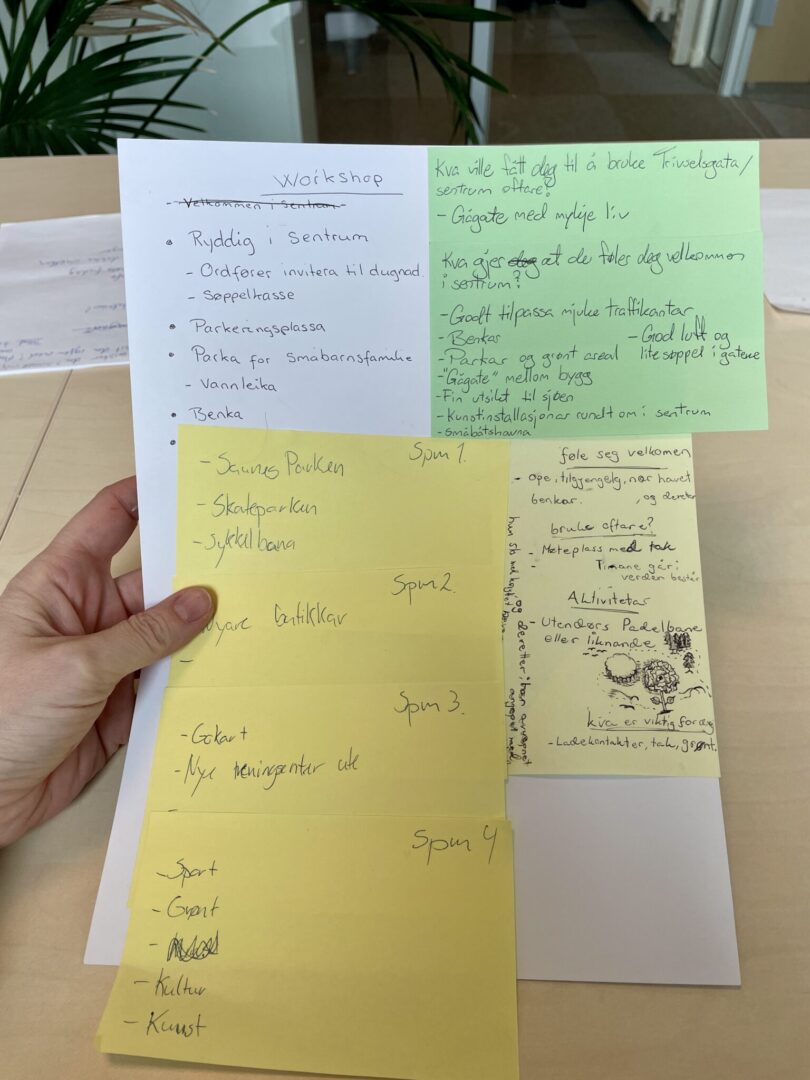 Workshop
- Velkommen i sentrum
• Ryddig i Sentrum
- Ordfører invitera til dugnad.
- Søppelkasse
• Parkeringsplassa
• Parka for Småbarnsfamilie
- Vannleika
• Benka
Kva ville fått deg til å bruke Trivselsgata/
sentrum oftare?
- Gågate med mykje liv
Kva gjer deg at du føler deg velkommen
i sentrum?
- Godt tilpassa mjuke trafikantar
- Benkar
- God luft og
- Parkar og grønt areal
lite søppel i gatene
- "Gågate" mellom bygg
- Fin utsikt til sjøen
- Kunstinstallasjonar rundt om i sentrum
- Småbåtshavna
Spm 1.
- Saunes Parken
- Skateparken
- Sykkelbana
Spm 2.
Nyare butikkar
-
Spm 3.
- Gokart
- Nye treningsenter ute
-
Spm 4
- Sport
- Grønt
-
- Kultur
- Kunst
føle seg velkomen
- Ope, tilgjengelg, nær havet
benkar.
, og deretter
bruke oftare?
- Møteplass med tak
-
Timane går i
verden består
Aktivitetar
- Utendørs Padelbane
eller liknande
kva er viktig for deg
- Ladekontakter, tak, grønt.
og deretter